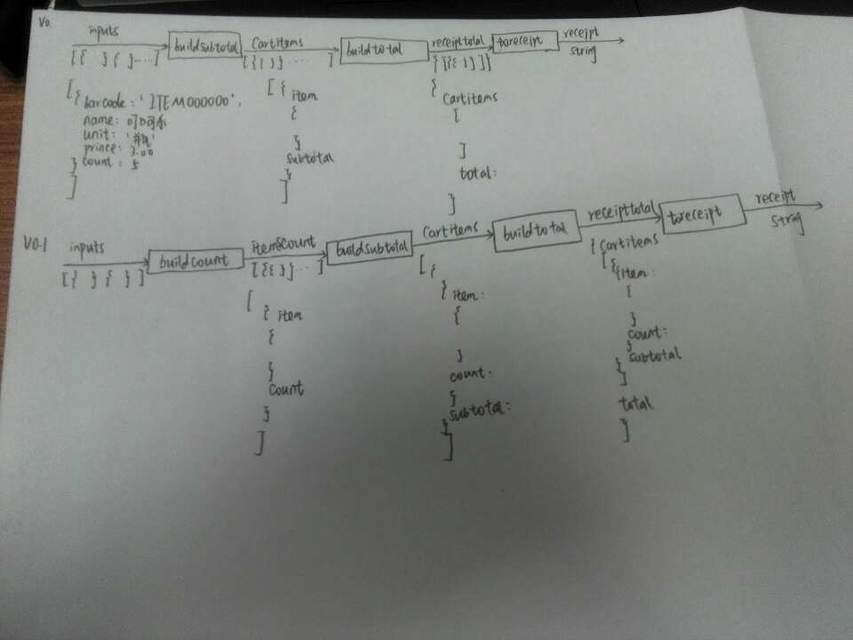 V0.
inputs
[{ } { }...] buildsubtotal CartItems [{{ } } ... ] buildtotal receipttotal { [{{ } }] } toreceipt receipt string
[{ barcode: 'ITEM000000',
name: 可口可乐
unit: '瓶'
prince: 3.00
} count: 5
]
[ { item
{
}
subtotal
}
]
{
Cartitems
[
]
total:
]
V0.1
inputs
[{ } { }] buildcount item&Count [{{ } } ... ] buildsubtotal Cartitems buildtotal receipttotal toreceipt receipt string
[
{ item
{
}
Count
}
]
[ {
{ item:
{
}
count:
}
subtotal:
}
]
{ Cartitems
[ { {item:
{
}
count:
}
subtotal
}
]
total
]